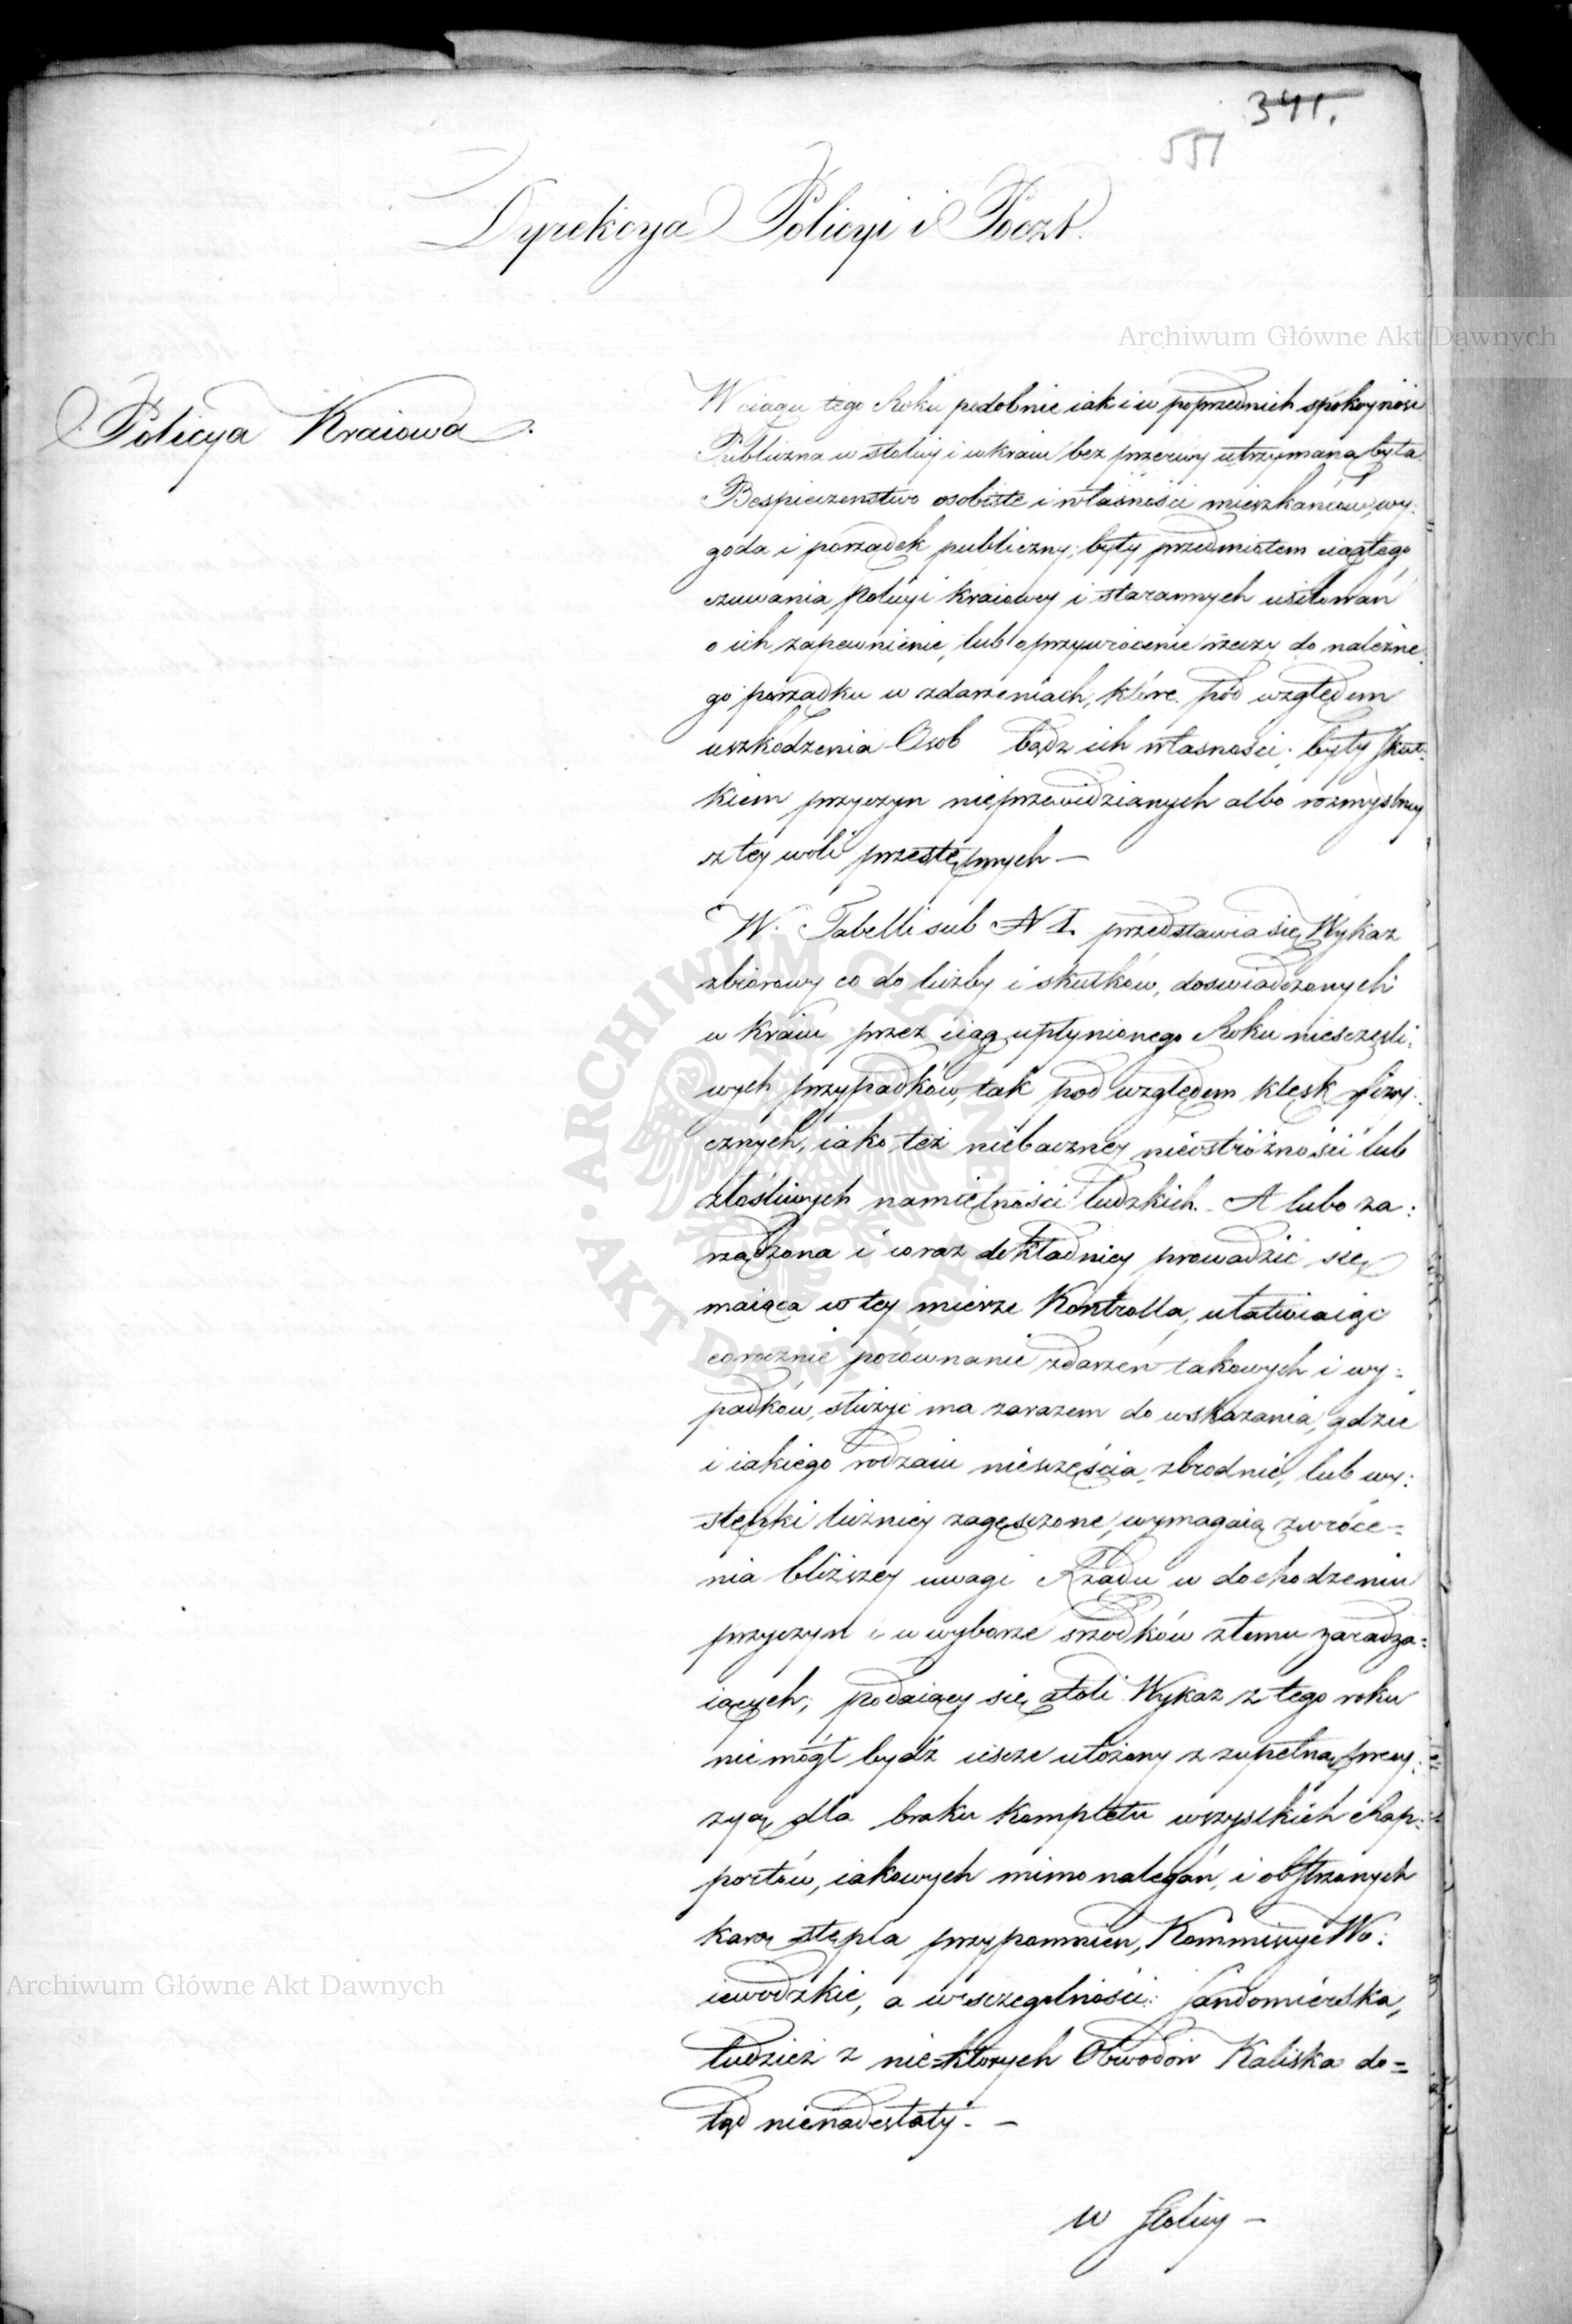 341.
551
Dyrekcya Policyi i Poczt.
Archiwum Główne Akt Dawnych
Policya Kraiowa.
W ciągu tego Roku podobnie iak i w poprzednich spokoyność
Publiczna w stolicy i w kraiu bez przerwy utrzymaną była.
Bespieczenstwo osobiste i własności mieszkańców, wy:
goda i porządek publiczny, były przedmiotem ciągłego
czuwania Policyi kraiowey i starannych usiłowań
o ich zapewnienie, lub o przywrócenie rzeczy do należne:
go porządku w zdarzeniach, które pod względem
uszkodzenia Osob bądz ich własności, były skut:
kiem przyczyn nieprzewidzianych albo rozmyślney
złey woli przestępnych —
W. Tabelli sub N I. przedstawia się Wykaz
zbiorowy co do liczby i skutków, doswiadczonych
w kraiu przez ciąg upłynionego Roku niesczęśli:
wych przypadków, tak pod względem klęsk fizy:
cznych, iako też niebaczney nieostróżności lub
złośliwych namiętności ludzkich. A lubo za:
rządzona i coraz dokładniey prowadzić się
maiąca w tey mierze Kontrolla, ułatwiaiąc
corocznie porównanie zdarzeń takowych i wy=
padków, służyć ma zarazem do wskazania, gdzie
i iakiego rodzaiu niesczęścia, zbrodnie, lub wy:
stępki liczniey zagęsczone, wymagaią zwróce=
nia bliższey uwagi Rządu w dochodzeniu
przyczyn i w wyborze srzodków złemu zaradza=
iących; podaiący się atoli Wykaz z tego roku
nie mógł bydź iescze ułożony z zupełną precy:
zyą dla braku kompletu wszystkich Rap:
portów, iakowych mimo nalegań, i obostrzonych
karą stępla przypomnień, Kommissye Wo:
iewodzkie, a w sczegolności: Sandomierska,
tudzież z nie=ktorych Obwodów Kaliska do=
tąd nienadesłały. —
Archiwum Główne Akt Dawnych
w Stolicy —
ARCHIWUM GŁÓWNE AKT DAWNYCH